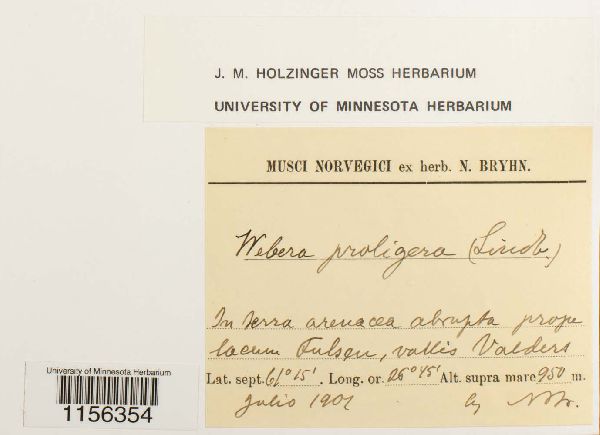 J. M. HOLZINGER MOSS HERBARIUM
UNIVERSITY OF MINNESOTA HERBARIUM
MUSCI NORVEGICI ex herb. N. BRYHN.
Webera proligera (Lindb.)
In terra arenacea abrupta prope
lacum Fulsen, vallis Valders
Lat. sept. 61° 15'. Long. or. 26° 45' Alt. supra mare 950 m.
Julio 1901
University of Minnesota Herbarium
1156354